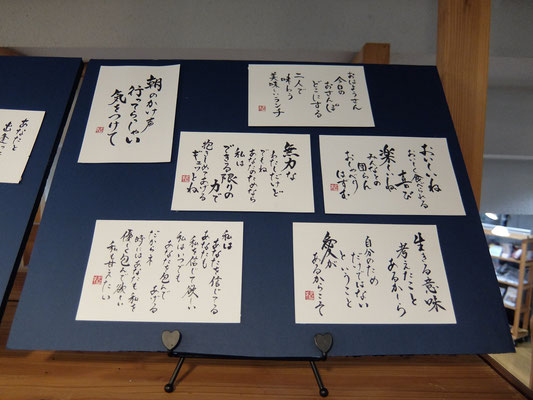 朝のかけ声
行ってらっしゃい
気をつけて
おはようさん
今日の
おさんぽ
どこにする
二人で
味わう
美味しいランチ
無力な
わたしだけど
でもね
あなたのためなら
私は
できる限りの
力で
抱きしめてあげる
ギュッとね
おいしいね
おいしく食べれる
喜び
楽しいね
みんなの
団らん
おしゃべり
はずむ
私は
あなたを信じてる
あなたも
私を信じて欲しい
私はいつでも
あなたを包んで
あげる
だからネ
時にはあなたも私を
優しく包んで欲しい
私甘えたい
生きる意味
考えたこと
あるかーら
自分のため
だけではない
ということ
愛が
あるからこそ
あなたと